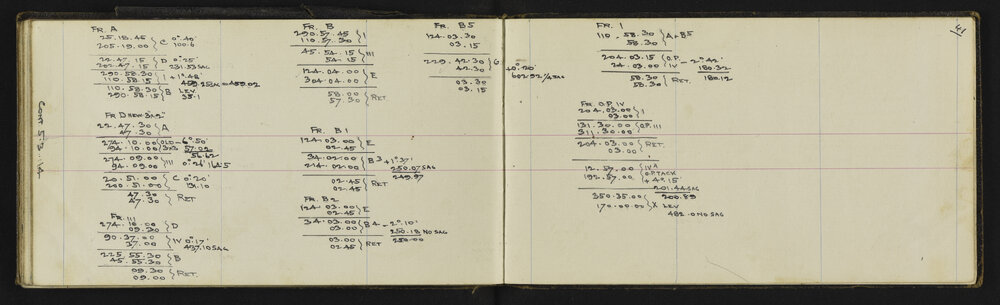 FR. A
25.18.45
205.19.00 } C 0°.40'
100.6
22.47.15 } D 0°25'
202.47.15 231.53 SAG
290.58.30 } I + 1°.48'
110.58.15 459.25 SAG = 459.02
110.58.30 } B LEV
290.58.15 35.1
FR D NEW 3x2"
22.47.30 } A
47.30
274.10.00 } OLD - 6°.50'
94.10.00 3x3 57.02
56.62
274.09.00 } III 0°26' 164.5
94.09.00
20.51.00 } C 0°20'
200.51.00 131.10
47.30 } RET
47.30
FR. III
274.10.00 } D
09.30
90.37.00 } IV 0°.17'
37.00 437.10 SAG
225.55.30 } B
45.55.30
09.30 } RET.
09.00
CONT 5.3.14
FR. B
290.57.45 } I
110.57.30
45.54.15 } III
54.15
124.04.00 } E
304.04.00
58.00 } RET
57.30
FR. B1
124.03.00 } E
02.45
34.02.00 } B3 + 1°37'
214.02.00 250.07 SAG
249.97
02.45 } RET
02.45
FR. B2
124.03.00 } E
02.45
34.03.00 } B4 - 2°.10'
03.00 250.18 NO SAG
250.00
03.00 } RET
02.45
FR. B5
124.03.30
03.15
229.42.30 } G
42.30 + 0°.20'
602.92 1/2 SAG
03.30
03.15
FR. 1
110.58.30 } A + B5
58.30
204.03.15 } O.P. - 2°.42'
24.03.00 IV 180.32
58.30 } RET. 180.12
58.30
FR. O.P. IV
204.03.00 } I
03.00
131.30.00 } O.P. III
311.30.00
204.03.00 } RET.
03.00
12.57.00 } IV A
192.57.00 O.P. TACK
+ 4°.15
201.44 SAG
200.89
350.35.00 } X LEV
170.00.00
482.0 NO SAG
41